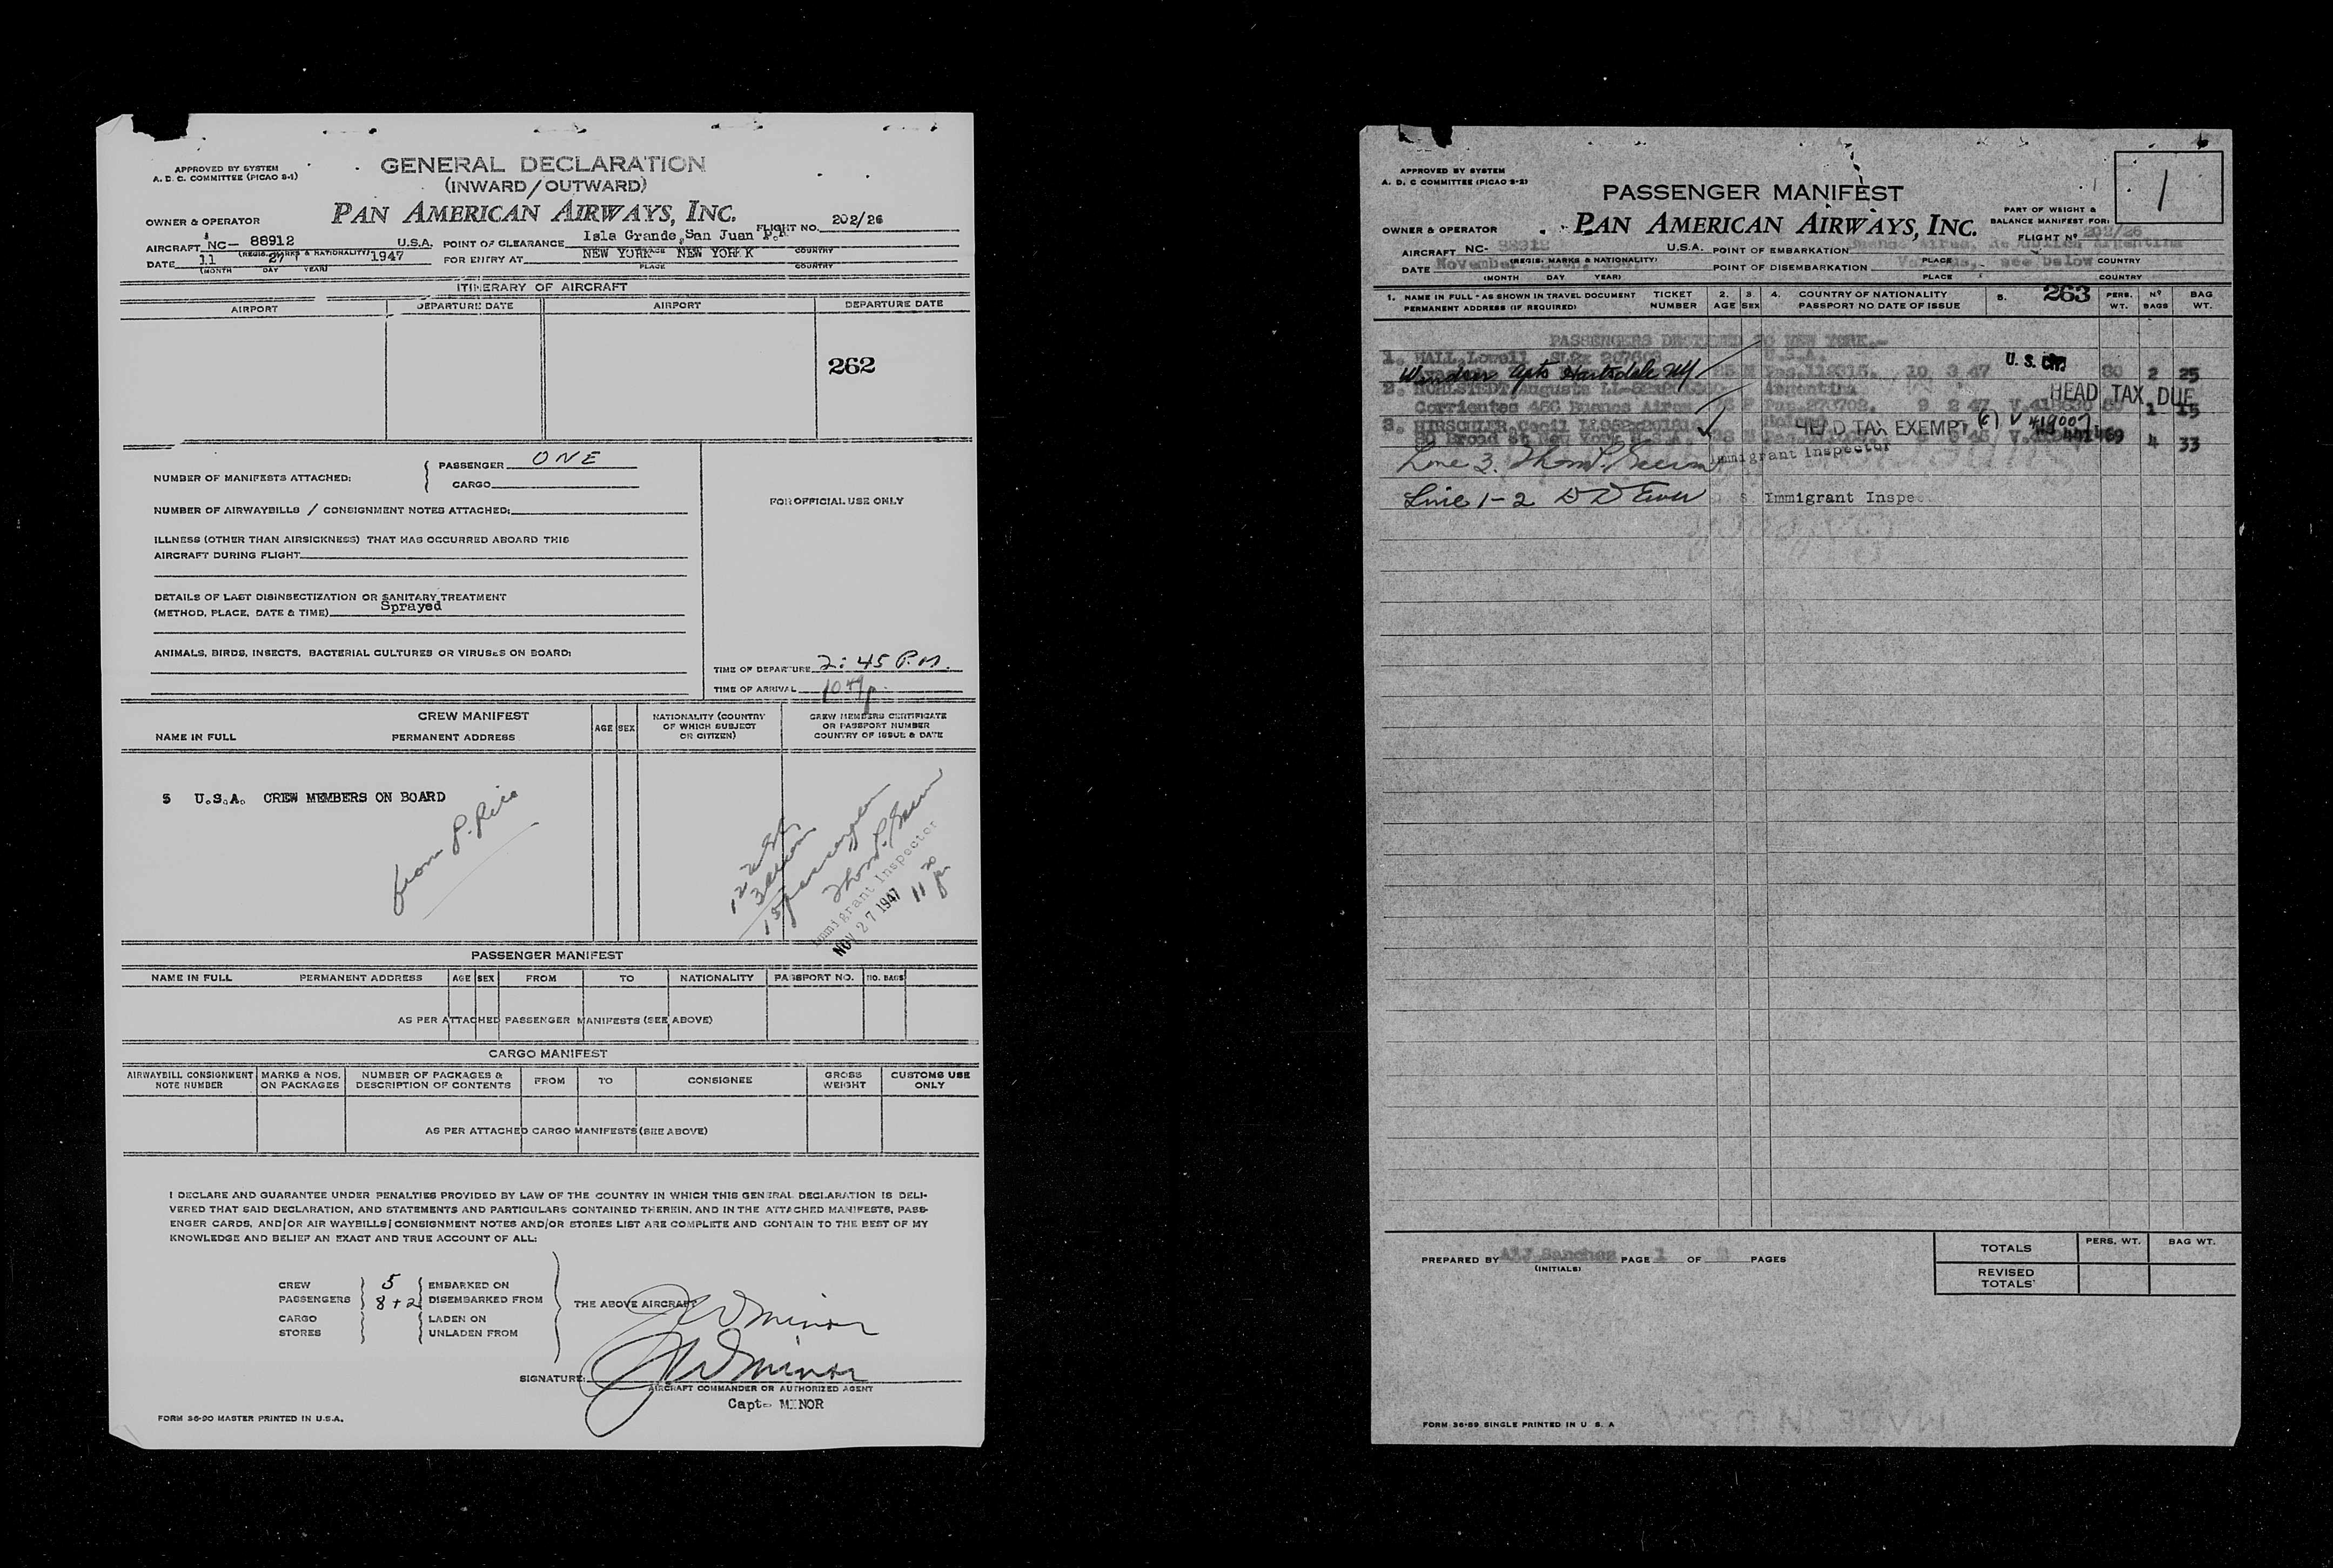 APPROVED BY SYSTEM
A. D. C. COMMITTEE (PICAO S-1)
GENERAL DECLARATION
(INWARD/OUTWARD)
OWNER & OPERATOR
PAN AMERICAN AIRWAYS, INC.
FLIGHT NO. 202/26
AIRCRAFT NC- 88912 U.S.A. POINT OF CLEARANCE Isla Grande, San Juan P.R.
(REGIS. MARKS & NATIONALITY) PLACE COUNTRY
DATE 11 27 1947 FOR ENTRY AT NEW YORK NEW YORK
(MONTH DAY YEAR) PLACE COUNTRY
ITINERARY OF AIRCRAFT
AIRPORT DEPARTURE DATE AIRPORT DEPARTURE DATE
262
NUMBER OF MANIFESTS ATTACHED: PASSENGER ONE
CARGO
FOR OFFICIAL USE ONLY
NUMBER OF AIRWAYBILLS / CONSIGNMENT NOTES ATTACHED:
ILLNESS (OTHER THAN AIRSICKNESS) THAT HAS OCCURRED ABOARD THIS
AIRCRAFT DURING FLIGHT
DETAILS OF LAST DISINSECTIZATION OR SANITARY TREATMENT
(METHOD, PLACE, DATE & TIME) Sprayed
ANIMALS, BIRDS, INSECTS, BACTERIAL CULTURES OR VIRUSES ON BOARD:
TIME OF DEPARTURE 2:45 P.M.
TIME OF ARRIVAL
CREW MANIFEST
NAME IN FULL PERMANENT ADDRESS
AGE SEX
NATIONALITY (COUNTRY OF WHICH SUBJECT OR CITIZEN)
CREW MEMBERS CERTIFICATE OR PASSPORT NUMBER COUNTRY OF ISSUE & DATE
5 U.S.A. CREW MEMBERS ON BOARD
from P. Rico
Immigrant Inspector
NOV 27 1947
PASSENGER MANIFEST
NAME IN FULL PERMANENT ADDRESS AGE SEX FROM TO NATIONALITY PASSPORT NO. NO. BAGS
AS PER ATTACHED PASSENGER MANIFESTS (SEE ABOVE)
CARGO MANIFEST
AIRWAYBILL CONSIGNMENT NOTE NUMBER MARKS & NOS. ON PACKAGES NUMBER OF PACKAGES & DESCRIPTION OF CONTENTS FROM TO CONSIGNEE GROSS WEIGHT CUSTOMS USE ONLY
AS PER ATTACHED CARGO MANIFESTS (SEE ABOVE)
I DECLARE AND GUARANTEE UNDER PENALTIES PROVIDED BY LAW OF THE COUNTRY IN WHICH THIS GENERAL DECLARATION IS DELI-
VERED THAT SAID DECLARATION, AND STATEMENTS AND PARTICULARS CONTAINED THEREIN, AND IN THE ATTACHED MANIFESTS, PASS-
ENGER CARDS, AND/OR AIR WAYBILLS/CONSIGNMENT NOTES AND/OR STORES LIST ARE COMPLETE AND CONTAIN TO THE BEST OF MY
KNOWLEDGE AND BELIEF AN EXACT AND TRUE ACCOUNT OF ALL:
CREW 5 EMBARKED ON
PASSENGERS 8+2 DISEMBARKED FROM THE ABOVE AIRCRAFT
CARGO LADEN ON
STORES UNLADEN FROM
SIGNATURE: JW Minor
AIRCRAFT COMMANDER OR AUTHORIZED AGENT
Capt- MINOR
FORM 36-90 MASTER PRINTED IN U.S.A.
APPROVED BY SYSTEM
A. D. C COMMITTEE (PICAO S-2)
PASSENGER MANIFEST
1
OWNER & OPERATOR
PAN AMERICAN AIRWAYS, INC.
PART OF WEIGHT &
BALANCE MANIFEST FOR:
FLIGHT Nº 202/26
AIRCRAFT NC- 88912 U.S.A. POINT OF EMBARKATION Buenos Aires, Argentina
(REGIS. MARKS & NATIONALITY) PLACE COUNTRY
DATE November POINT OF DISEMBARKATION Various, see below
(MONTH DAY YEAR) PLACE COUNTRY
1. NAME IN FULL - AS SHOWN IN TRAVEL DOCUMENT TICKET NUMBER 2. AGE 3 SEX 4. COUNTRY OF NATIONALITY 5. 263 PERS. WT. Nº BAGS BAG WT.
PERMANENT ADDRESS (IF REQUIRED) PASSPORT NO DATE OF ISSUE
PASSENGERS DESTINED TO NEW YORK.-
1. HALL, Lowell U.S.A.
Windsor Apts Hartsdale NY 10 3 47 U. S. CIT. 2 25
2. Augusta Argentina HEAD TAX DUE
Corrientes 456 Buenos Aires 9 2 47 1 15
3. HIRSCHLER, Cecil HEAD TAX EXEMPT
80 Broad St New York U.S.A. 4 33
Line 3. Immigrant Inspector
Line 1-2 Immigrant Inspec
PREPARED BY Sanchez PAGE 1 OF PAGES
(INITIALS)
TOTALS PERS. WT. BAG WT.
REVISED TOTALS
FORM 36-89 SINGLE PRINTED IN U S. A
MADE IN U.S.A.